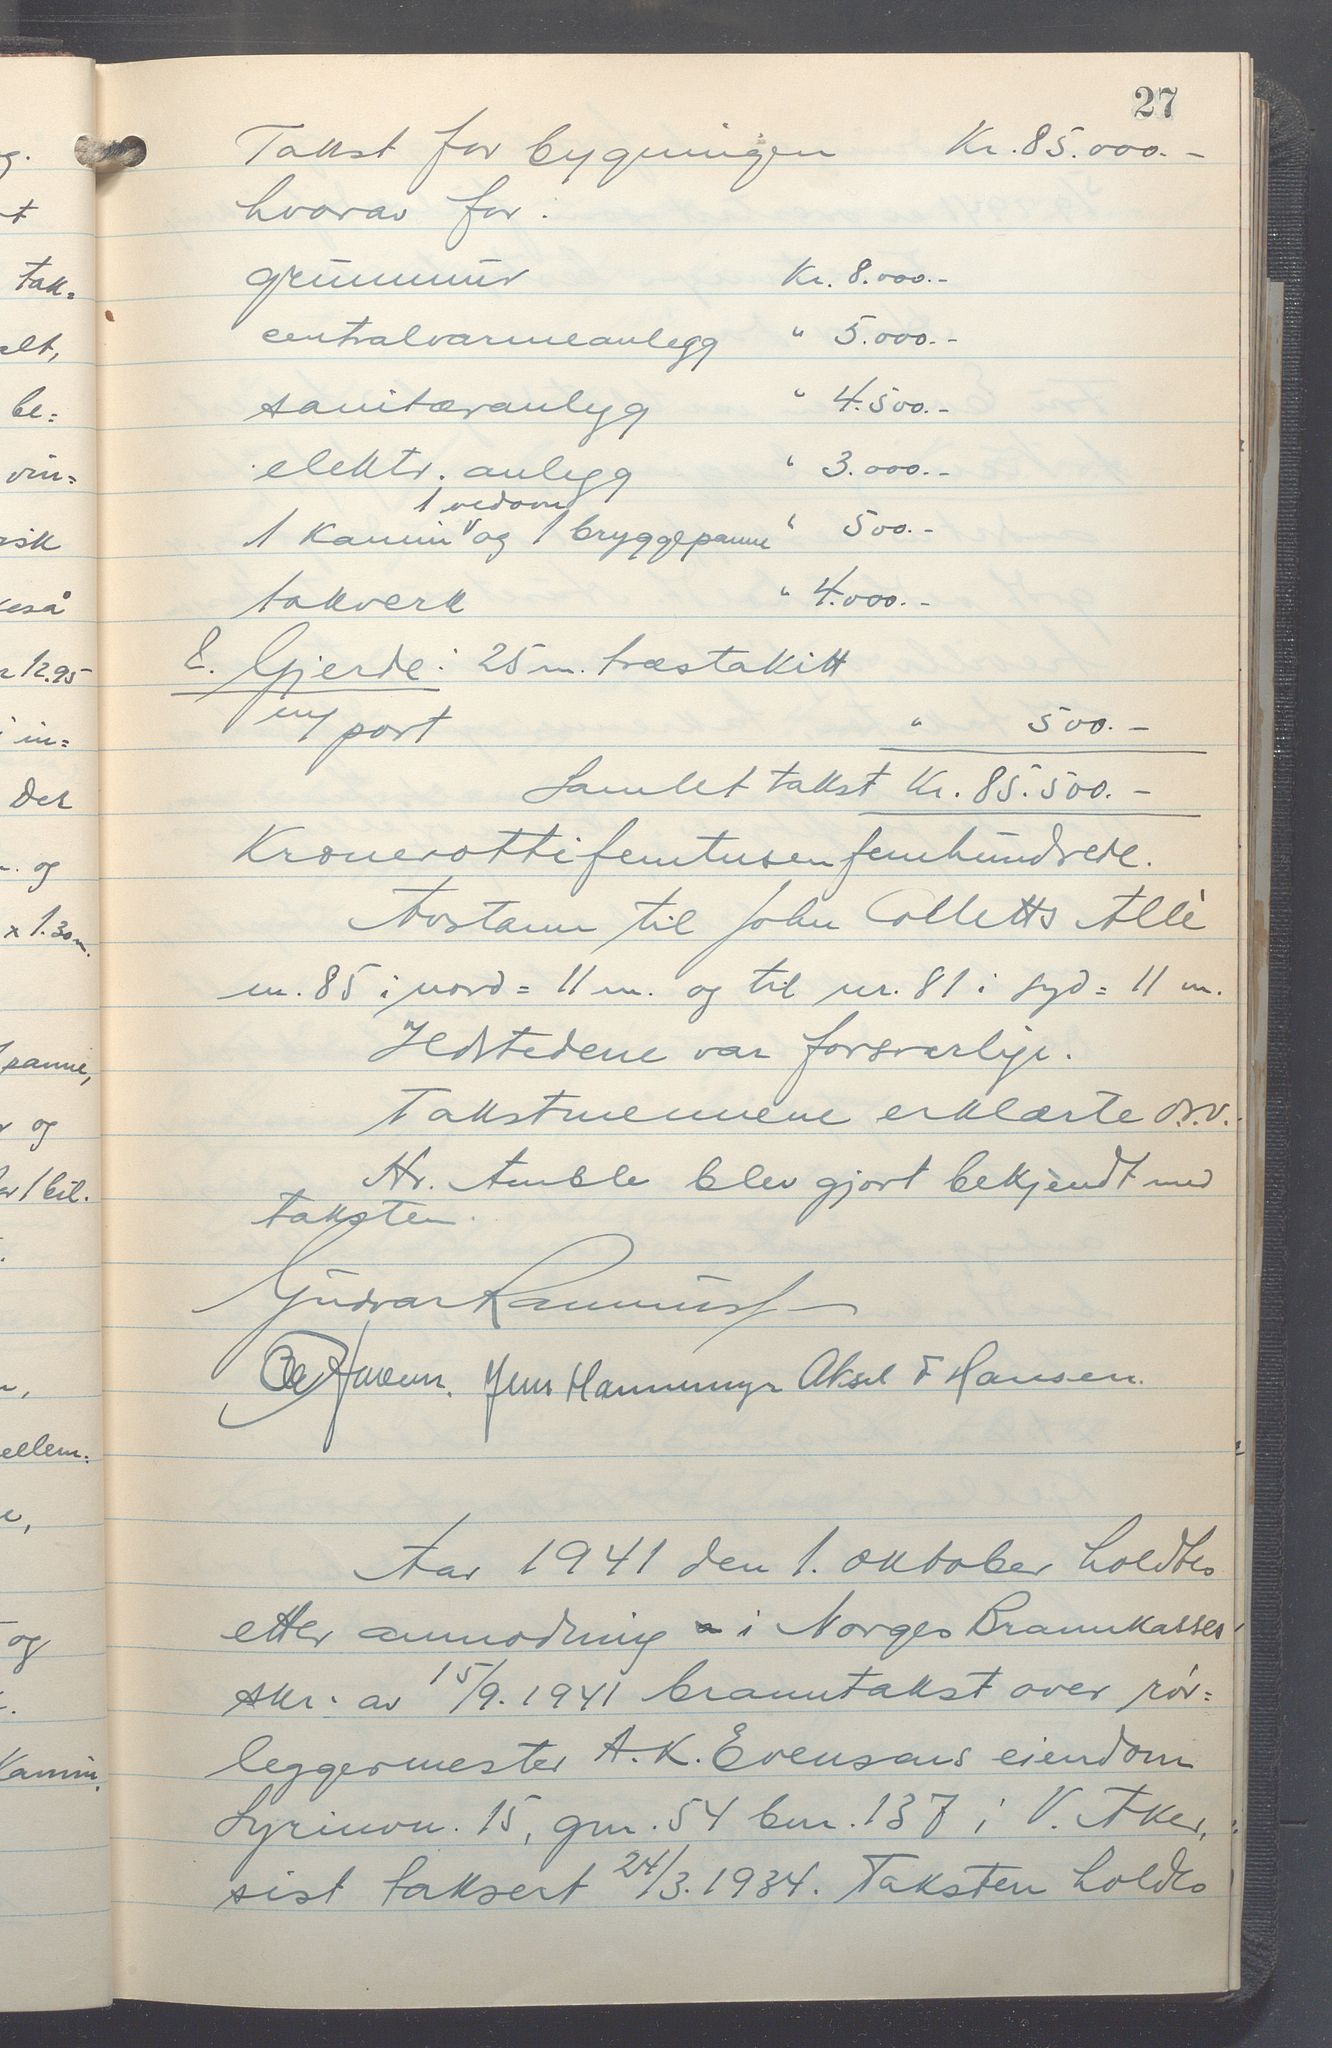 g.
t
tak=
alt,
be=
vin=
isk
eså
12.95
i in=
Der
og
x 1.30 m.
panne,
og
1 bil.
ellem=
og
Kamin.
27
Takst for bygningen Kr. 85.000.-
hvorav for:
grunnmur Kr. 8.000.-
centralvarmeanlegg " 5.000.-
sanitæranlegg " 4.500.-
elektr. anlegg " 3.000.-
1 vedovn
1 Kamin v og 1 bryggepanne " 500.-
takverk " 4.000.-
E. Gjerde: 25 m. træstakitt
m/ port " 500.-
Samlet takst Kr. 85.500.-
Kronerottifemtusenfemhundrede.
Avstann til John Colletts Allè
nr. 85 i nord = 11 m. og til nr. 81 i syd = 11 m.
Ildstedene var forsvarlige.
Takstmennene erklærte o.s.v.
Hr. Amble blev gjort bekjendt med
taksten.
Gudvar
Jens Hannemyr Aksel F Hansen.
Aar 1941 den 1. oktober holdtes
etter anmodning i Norges Brannkasses
skr. av 15/9. 1941 branntakst over rør=
leggermester A. K. Evensens eiendom
Syrinvn. 15, gnr. 54 bnr. 137 i V. Aker,
sist taksert 24/3. 1934. Taksten holdtes